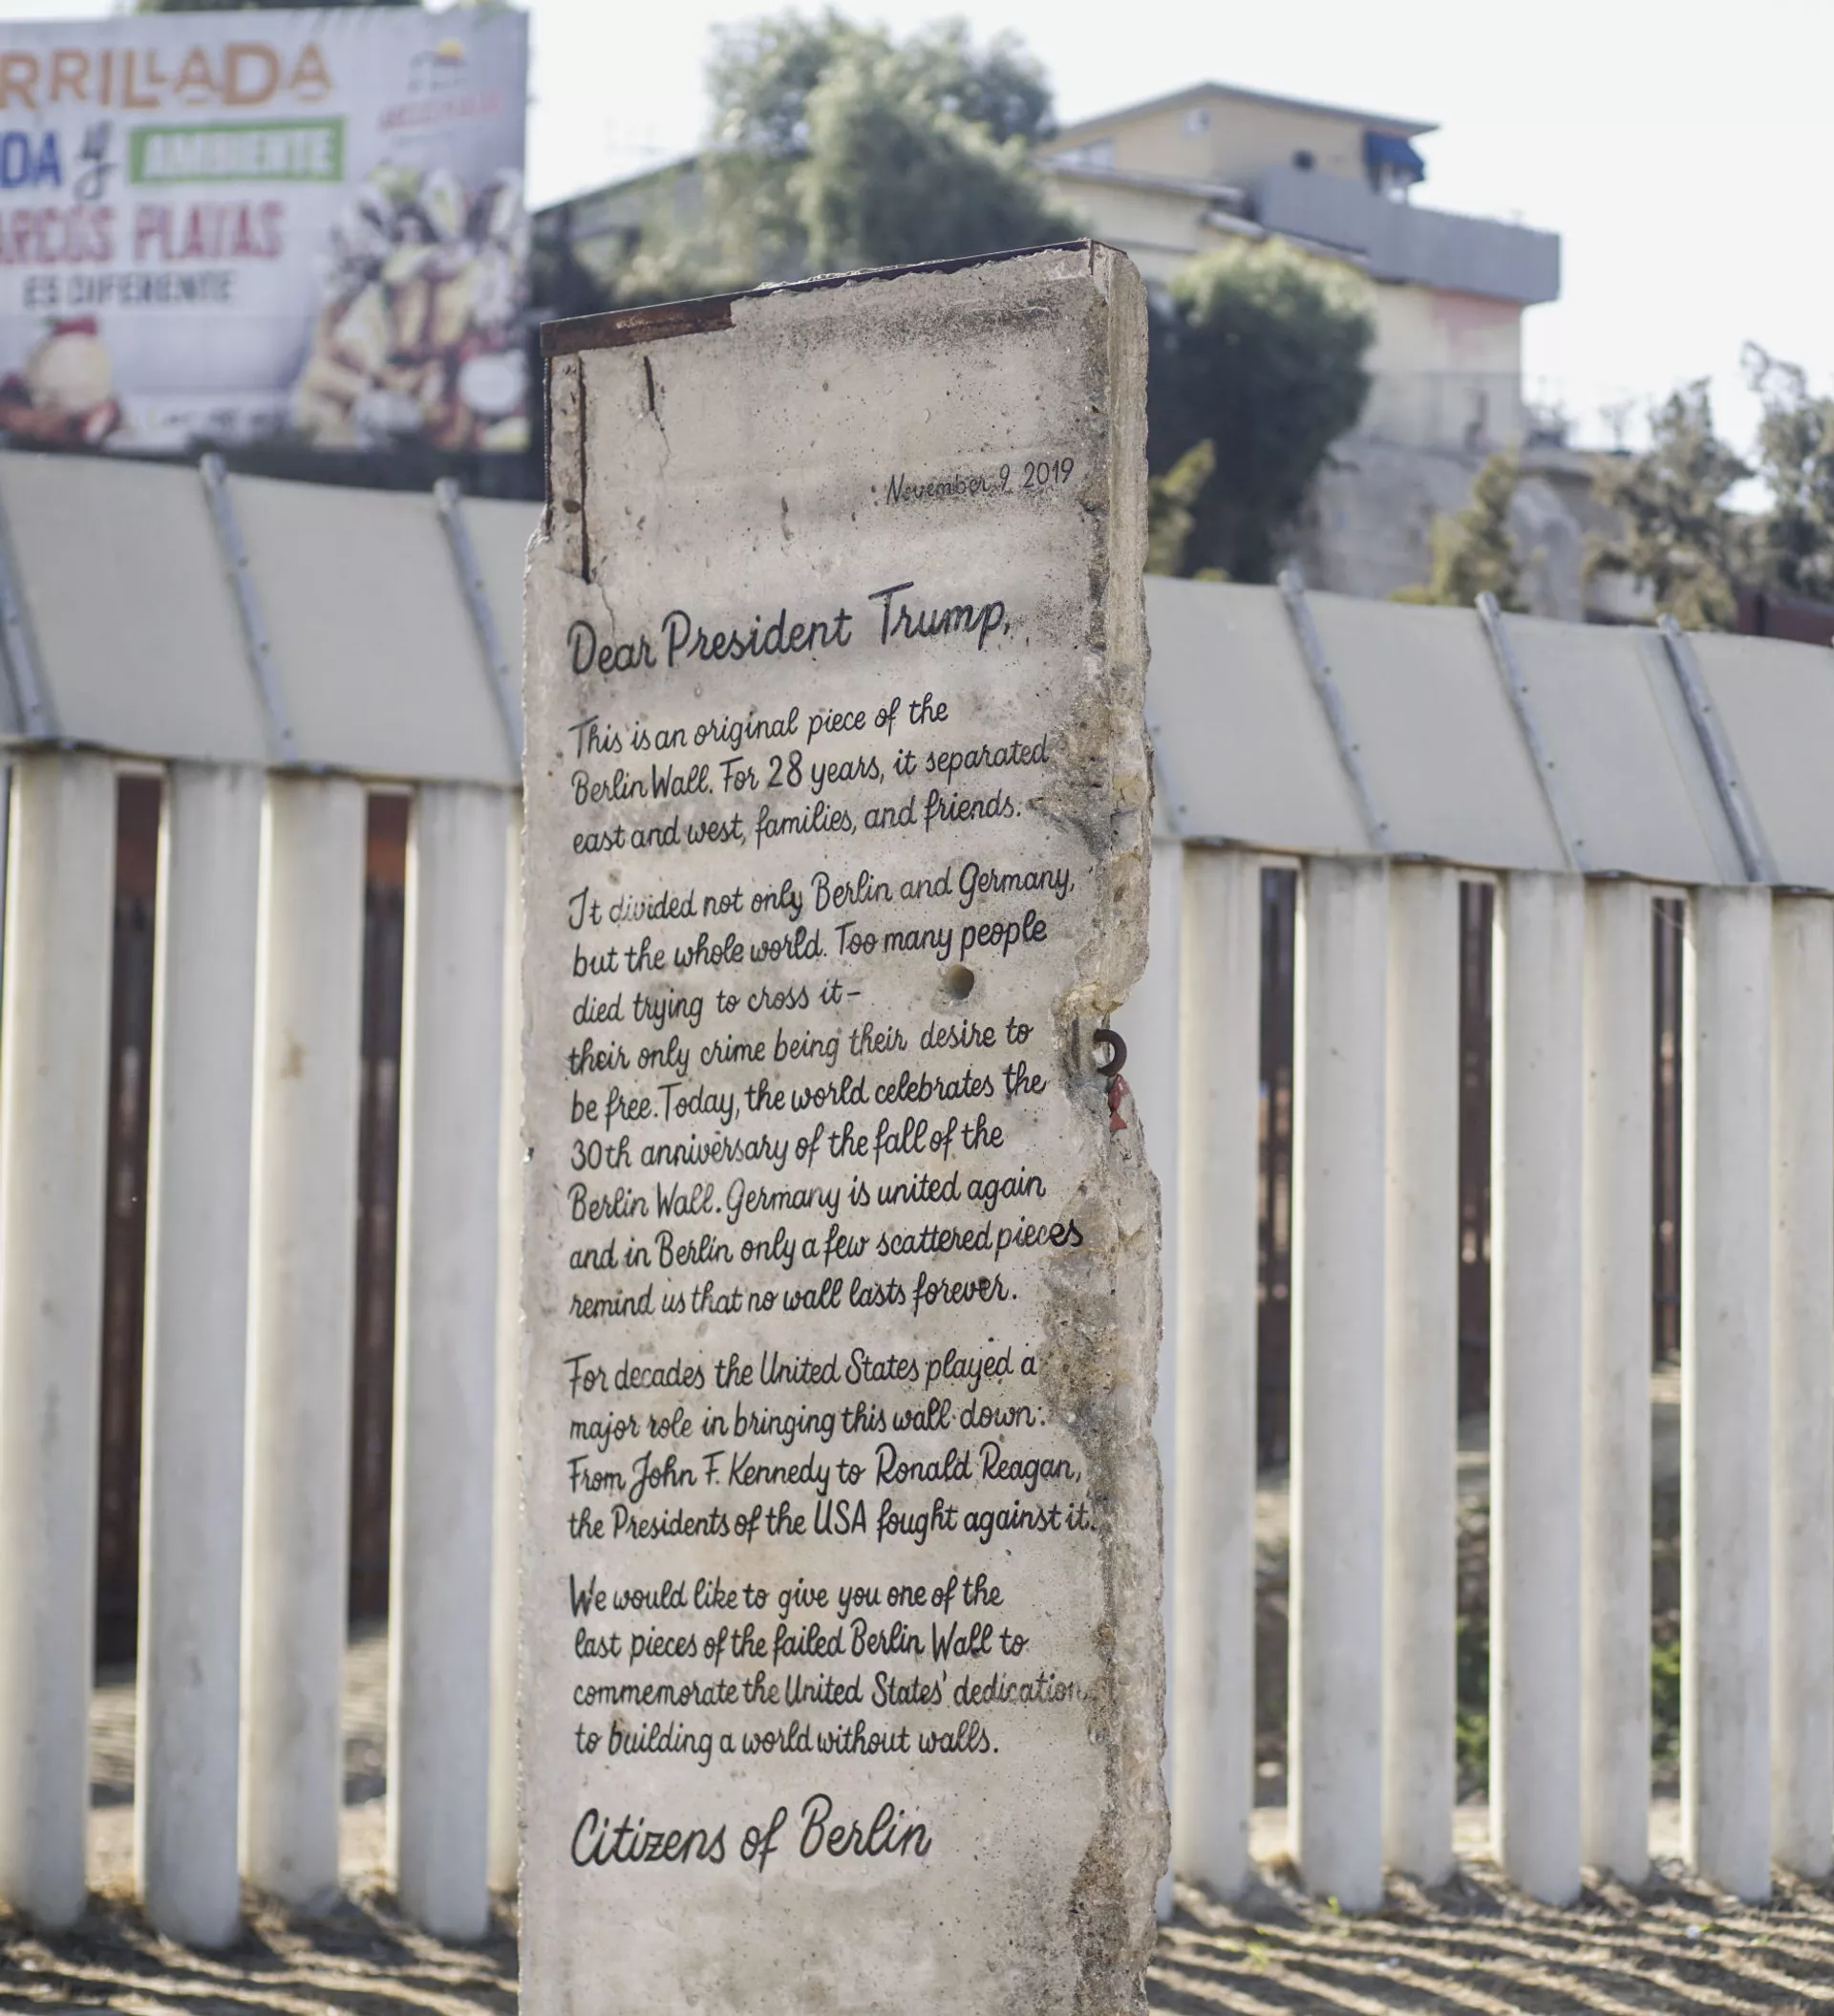 RRILLADA
DA y AMBIENTE
ARCOS PLAYAS
ES DIFERENTE
November 9 2019
Dear President Trump,
This is an original piece of the
Berlin Wall. For 28 years, it separated
east and west, families, and friends.
It divided not only Berlin and Germany,
but the whole world. Too many people
died trying to cross it –
their only crime being their desire to
be free. Today, the world celebrates the
30th anniversary of the fall of the
Berlin Wall. Germany is united again
and in Berlin only a few scattered pieces
remind us that no wall lasts forever.
For decades the United States played a
major role in bringing this wall down:
From John F. Kennedy to Ronald Reagan,
the Presidents of the USA fought against it.
We would like to give you one of the
last pieces of the failed Berlin Wall to
commemorate the United States' dedication
to building a world without walls.
Citizens of Berlin